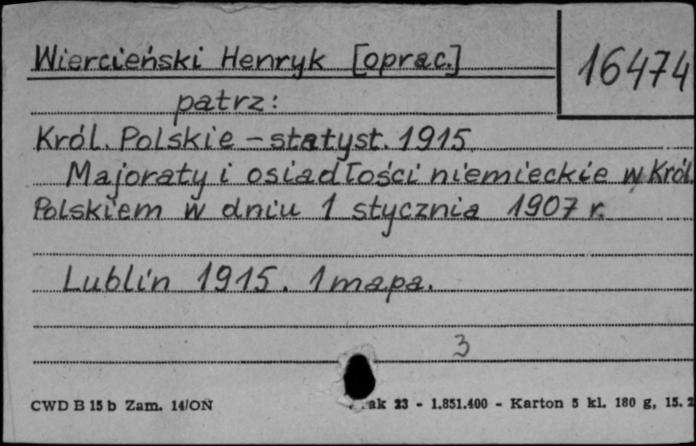 Wiercieński Henryk [oprac.]
16474
patrz:
Król. Polskie - statyst. 1915.
Majoraty i osiadłości niemieckie w Król.
Polskiem w dniu 1 stycznia 1907 r.
Lublin 1915. 1 mapa.
3
CWD B 15 b Zam. 14/ON
23 - 1.851.400 - Karton 5 kl. 180 g, 15.